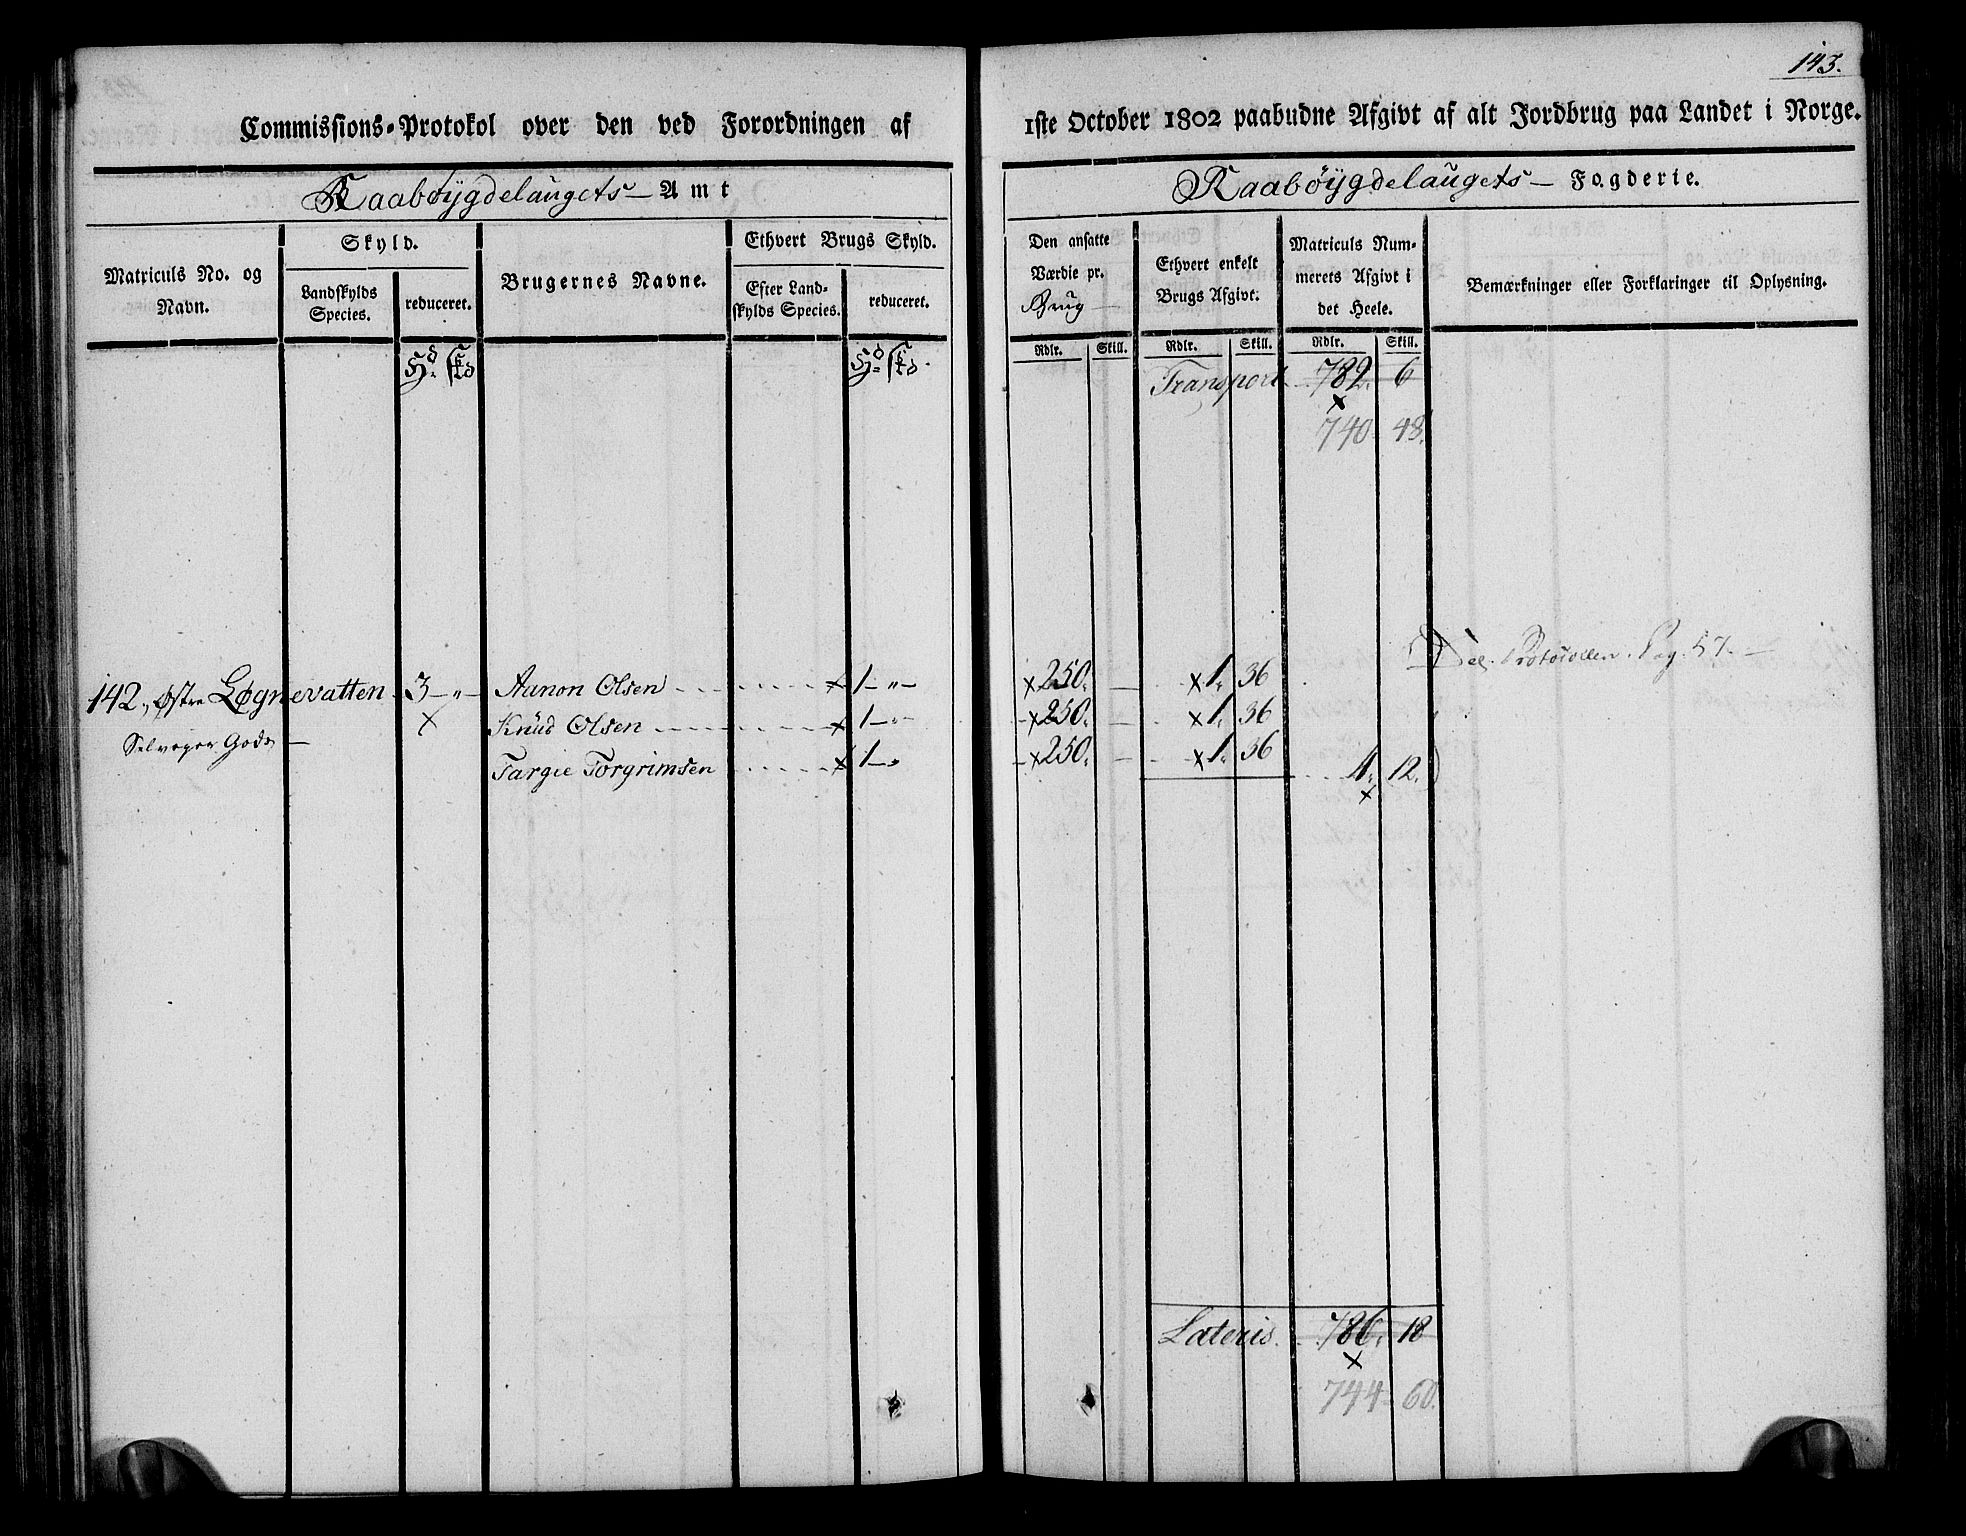 143.
Commissions-Protokol over den ved Forordningen af 1ste October 1802 paabudne Afgivt af alt Jordbrug paa Landet i Norge.
Raabøygdelaugets — Amt
Raabøygdelaugets — Fogderie.
Matriculs No. og Navn.
Skyld.
Landskylds Species.
reduceret.
Brugernes Navne.
Ethvert Brugs Skyld.
Efter Landskylds Species.
reduceret.
Den ansatte Værdie pr. Brug —
Ethvert enkelt Brugs Afgivt.
Matriculs Nummerets Afgivt i det Heele.
Bemærkninger eller Forklaringer til Oplysning.
Rdlr. Skill. Rdlr. Skill. Rdlr. Skill.
Transport 789. 6
x
740 48.
Del. Protocollen. Pag. 57. —
142., Østre Løgnevatten 3 — „ — Aanon Olsen x 1 — „ — x 250. — x 1. 36
Selveyer Gods — x Knud Olsen x 1 — „ — x 250. — x 1. 36
Targie Torgrimsen x 1 — „ x 250. — x 1. 36 4. 12.
x
Lateris. 786. 18
x
744 60.